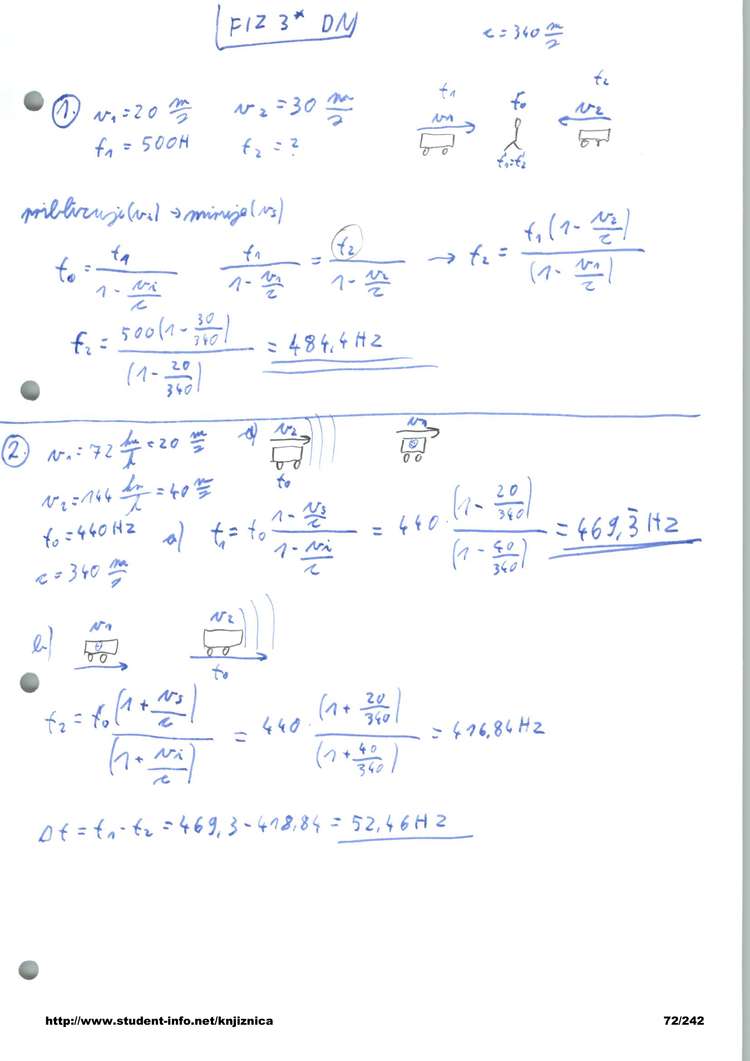 FIZ 3* DN
c = 340 m/s
1. v1 = 20 m/s v2 = 30 m/s
f1 = 500H f2 = ?
t1 v1 fo t2 v2
f1=f2
približuje(vi) → miruje(vs)
fo = f1 / (1 - vi/c) f1 / (1 - v1/c) = f2 / (1 - v2/c) → f2 = f1(1 - v2/c) / (1 - v1/c)
f2 = 500(1 - 30/340) / (1 - 20/340) = 484,4 HZ
2. v1 = 72 km/h = 20 m/s a) v2 v1
fo
v2 = 144 km/h = 40 m/s
fo = 440 HZ a) f1 = fo (1 - vs/c) / (1 - vi/c) = 440 · (1 - 20/340) / (1 - 40/340) = 469,3̄ HZ
c = 340 m/s
b) v1 v2
fo
f2 = fo (1 + vs/c) / (1 + vi/c) = 440 · (1 + 20/340) / (1 + 40/340) = 416,84 HZ
Δf = f1 - f2 = 469,3 - 418,84 = 52,46 HZ
http://www.student-info.net/knjiznica 72/242